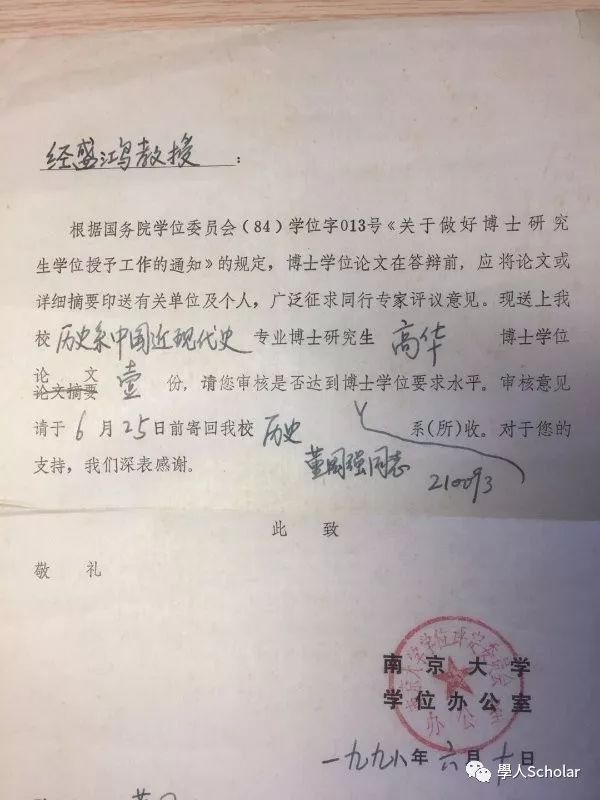 经盛鸿教授：
根据国务院学位委员会(84)学位字013号《关于做好博士研究
生学位授予工作的通知》的规定，博士学位论文在答辩前，应将论文或
详细摘要印送有关单位及个人，广泛征求同行专家评议意见。现送上我
校历史系中国近现代史专业博士研究生 高华 博士学位
论文
论文摘要 壹 份，请您审核是否达到博士学位要求水平。审核意见
请于6月25日前寄回我校 历史 系(所)收。对于您的
董国强同志
支持，我们深表感谢。
210093
此致
敬礼
南京大学
学位办公室
南京大学学位评定委员会
办公室
一九九八年六月十日
學人Scholar